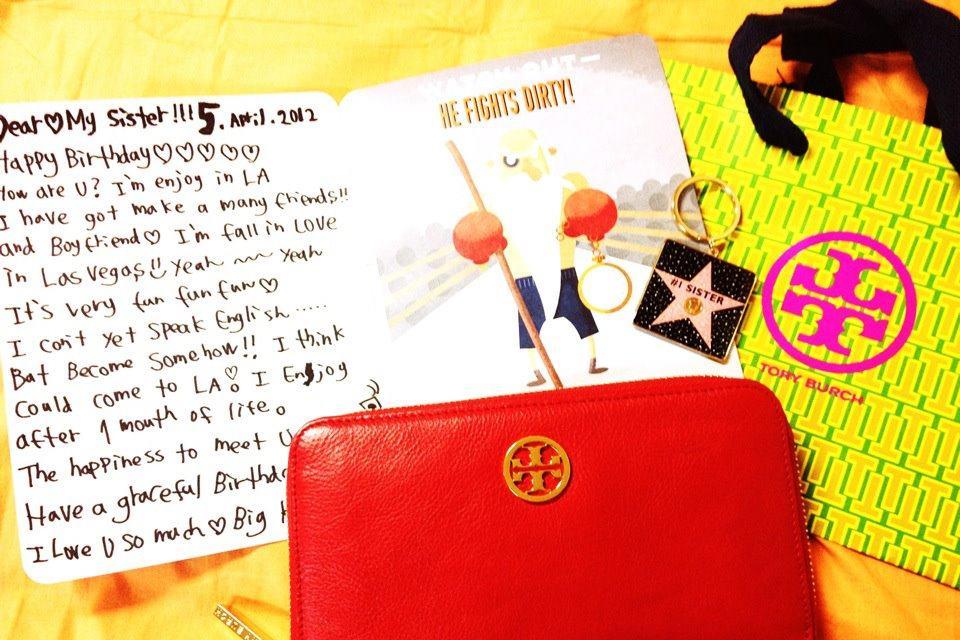 Dear♡My Sister!!! 5. April. 2012
Happy Birthday♡♡♡♡♡
How are U? I'm enjoy in LA
I have got make a many friends!!
and Boyfriend♡ I'm fall in Love
in Las Vegas!! Yeah ~~ Yeah
It's very fun fun fun♡
I con't Yet Speak English.....
Bat Become Somehow!! I think
Could come to LA! I Enjoy
after 1 mouth of life。
The happiness to meet U
Have a graceful Birthda
I Love U So much♡ Big H
WATCH OUT—
HE FIGHTS DIRTY!
#1 SISTER
TORY BURCH